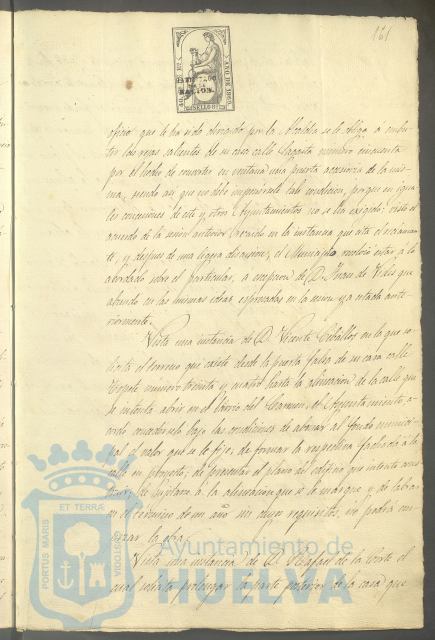 161
SELLO 8º
AÑO DE 1869
HABILITADO
POR LA
NACION.
oficio que le ha sido dirigido por la Alcaldia se le obliga a embu-
tir las rejas salientes de su casa calle Sagasta numero cincuenta
por el hecho de convertir en ventana una puerta accesoria de la mis-
ma, siendo asi que no debe imponersele tal condicion, porque en igua-
les concesiones de este y otros Ayuntamientos no se ha exigido: visto el
acuerdo de la sesion anterior recaido en la instancia que cita el recurren-
te, y despues de una ligera discusion, el Municipio resolvió estar á lo
acordado sobre el particular, á escepcion de D. Juan de Vides que
abundó en las mismas ideas espresadas en la sesion ya citada ante-
riormente.
Vista una instancia de D. Vicente Ceballos en la que so-
licita el terreno que existe desde la puerta falsa de su casa calle
numero treinta y cuatro hasta la alineacion de la calle que
se intenta abrir en el barrio del Carmen, el Ayuntamiento a-
cordó concederselo bajo las condiciones de abonar al fondo munici-
pal el valor que se le fije, de formar la respectiva fachada á la
calle en proyecto, de presentar el plano del edificio que intenta cons-
truir, de sujetarse á la alineacion que se le marque y de labrar
en el término de un año sin cuyos requisitos, no podrá em-
pezar la obra.
Vista una instancia de D. Rafael de la Corte el
cual solicita prolongar la parte posterior de la casa que
PORTUS MARIS
ET TERRÆ
CUSTODIA
Ayuntamiento de
HUELVA